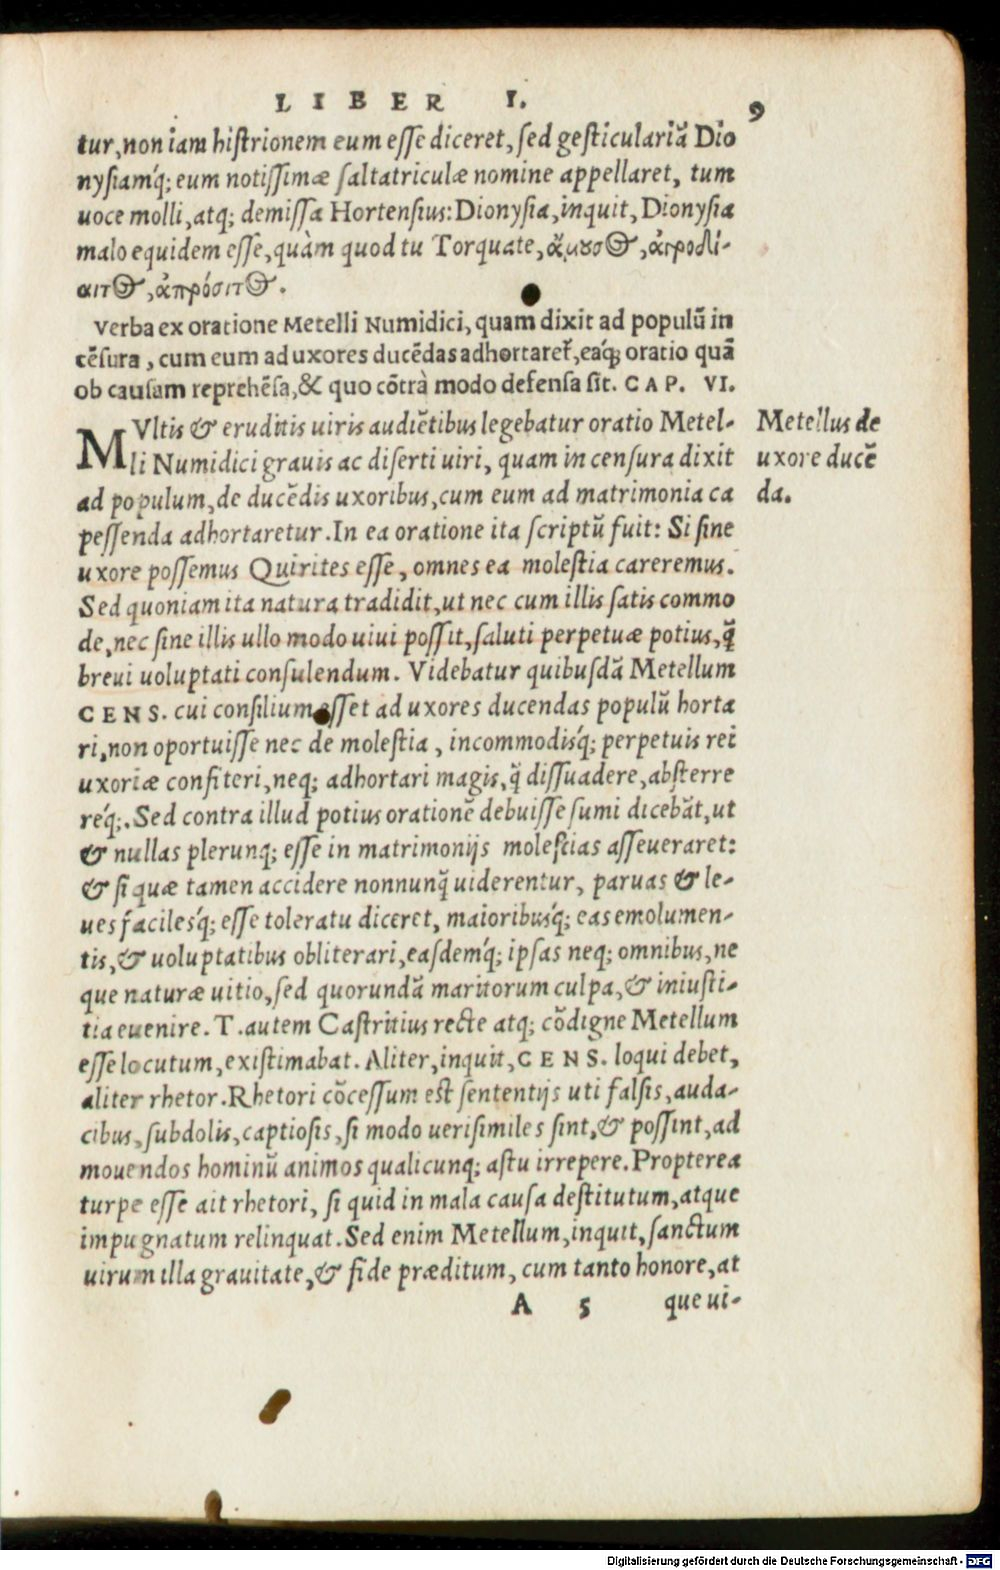 LIBER I. 9
tur, non iam histrionem eum esse diceret, sed gesticulariã Dio
nysiamq́; eum notissimæ saltatriculæ nomine appellaret, tum
uoce molli, atq; demissa Hortensius: Dionysia, inquit, Dionysia
malo equidem esse, quàm quod tu Torquate, ἄμουσος, ἀπροδί-
αιτος, ἀπρόσιτος.
Verba ex oratione Metelli Numidici, quam dixit ad populũ in
cẽsura, cum eum ad uxores ducẽdas adhortaret̃, eáq; oratio quã
ob causam reprehẽsa, & quo cõtrà modo defensa sit. CAP. VI.
MVltis & eruditis uiris audiẽtibus legebatur oratio Metel-
li Numidici grauis ac diserti uiri, quam in censura dixit
ad populum, de ducẽdis uxoribus, cum eum ad matrimonia ca
pessenda adhortaretur. In ea oratione ita scriptũ fuit: Si sine
uxore possemus Quirites esse, omnes ea molestia careremus.
Sed quoniam ita natura tradidit, ut nec cum illis satis commo
de, nec sine illis ullo modo uiui possit, saluti perpetuæ potius, q̃
breui uoluptati consulendum. Videbatur quibusdã Metellum
CENS. cui consilium esset ad uxores ducendas populũ horta
ri, non oportuisse nec de molestia, incommodisq́; perpetuis rei
uxoriæ confiteri, neq; adhortari magis, q̃ dissuadere, absterre
req́;. Sed contra illud potius orationẽ debuisse sumi dicebãt, ut
& nullas plerunq; esse in matrimonijs molestias asseueraret:
& si quæ tamen accidere nonnunq̃ uiderentur, paruas & le-
ues facilesq́; esse toleratu diceret, maioribusq́; eas emolumen-
tis, & uoluptatibus obliterari, easdemq́; ipsas neq; omnibus, ne
que naturæ uitio, sed quorundã maritorum culpa, & iniusti-
tia euenire. T. autem Castritius recte atq; cõdigne Metellum
esse locutum, existimabat. Aliter, inquit, CENS. loqui debet,
aliter rhetor. Rhetori cõcessum est sententijs uti falsis, auda-
cibus, subdolis, captiosis, si modo uerisimiles sint, & possint, ad
mouendos hominũ animos qualicunq; astu irrepere. Propterea
turpe esse ait rhetori, si quid in mala causa destitutum, atque
impugnatum relinquat. Sed enim Metellum, inquit, sanctum
uirum illa grauitate, & fide præditum, cum tanto honore, at
A 5 que ui-
Metellus de
uxore ducẽ
da.
Digitalisierung gefördert durch die Deutsche Forschungsgemeinschaft - DFG